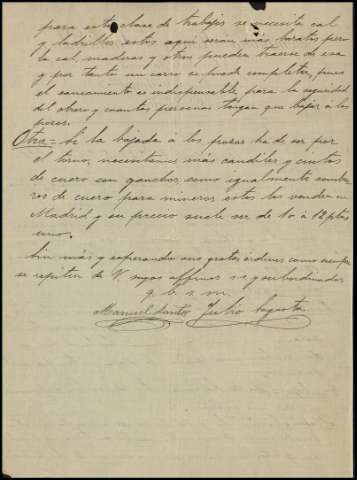 para esta clase de trabajos se necesita cal
y ladrillos estos aqui seran mas baratos pero
la cal, maderas y otros pueden traerse de esa
y por tanto un carro se puede completar, pues
el saneamiento es indispensable para la seguridad
del obrero y cuantas personas tengan que bajar á los
pozos.
Otra = Si la bajada á los pozos ha de ser por
el torno, necesitamos más candiles y cintos
de cuero con ganchos como igualmente sombre
ros de cuero para mineros estos los venden en
Madrid y su precio suele ser de 10 á 12 ptas
uno.
Sin más y esperando sus gratas órdenes como siempre
se repiten de V. suyos affmos s.s. y subordinados
q. b. s. m.
Manuel Santos Julio Sagasta